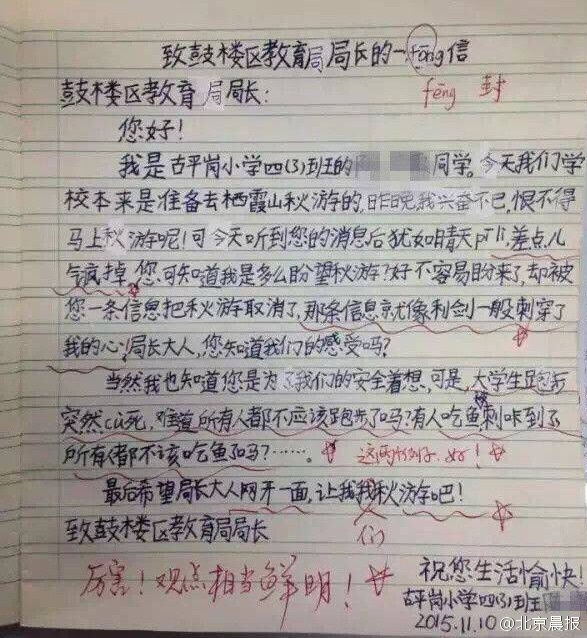 致鼓楼区教育局局长的一fōng信
fēng 封
鼓楼区教育局局长：
您好！
我是古平岗小学四(3)班的 同学。今天我们学
校本来是准备去栖霞山秋游的，昨晚，我兴奋不已，恨不得
马上秋游呢！可今天听到您的消息后犹如晴天pī lì，差点儿
气疯掉。您可知道我是多么盼望秋游？好不容易盼来了，却被
您一条信息把秋游取消了，那条信息就像利剑一般刺穿了
我的心！局长大人，您知道我们的感受吗？
当然我也知道您是为了我们的安全着想，可是，大学生跑步
突然cù死，难道所有人都不应该跑步了吗？有人吃鱼被刺咔到了
所有人都不该吃鱼了吗？……。 这两个例子，好！
最后希望局长大人网开一面，让我我秋游吧！
们
致鼓楼区教育局局长
厉害！观点相当鲜明！
祝您生活愉快！
古平岗小学四(3)班
2015.11.10
@北京晨报